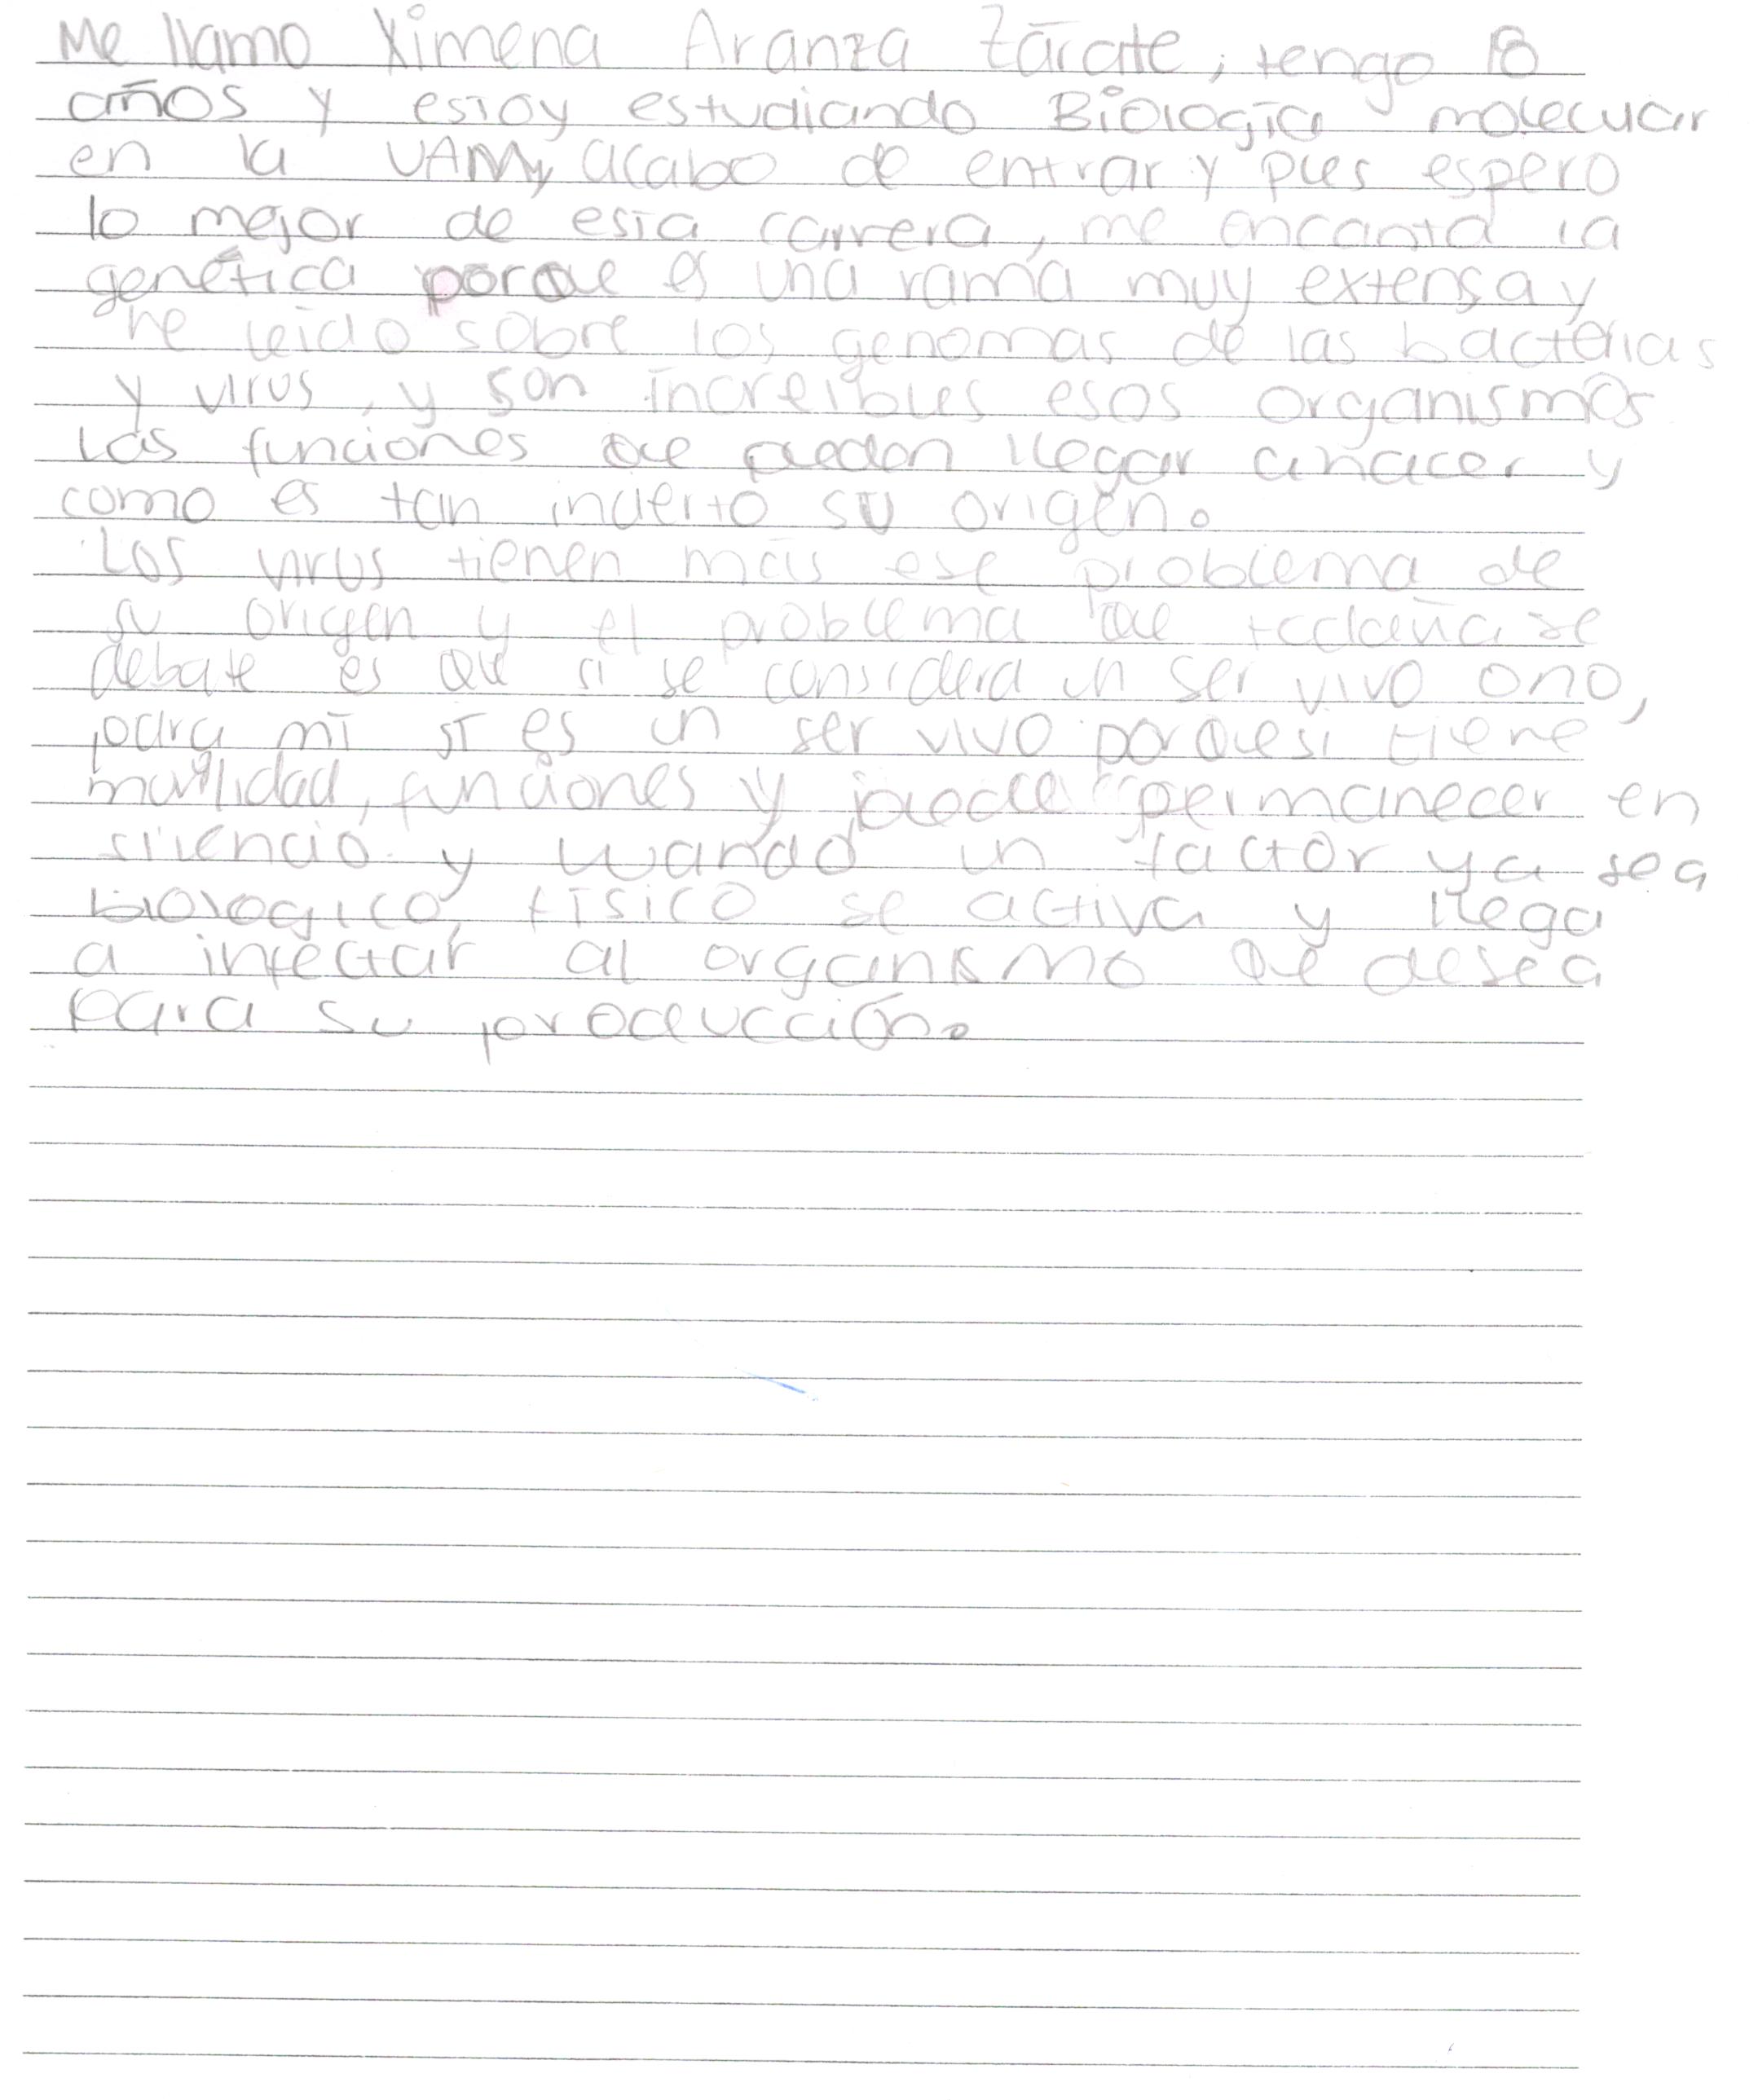 Me llamo Ximena Aranza Zárate, tengo 18
años y estoy estudiando Biología molecular
en la UAM, acabo de entrar y pues espero
lo mejor de esta carrera, me encanta la
genética porque es una rama muy extensa y
he leido sobre los genomas de las bacterias
y virus, y son increibles esos organismos
Las funciones que pueden llegar a hacer y
como es tan incierto su origen.
Los virus tienen más ese problema de
su origen y el problema que todavía se
debate es que si se considera un ser vivo o no,
para mí sí es un ser vivo porque si tiene
movilidad, funciones y puede permanecer en
silencio y cuando un factor ya sea
biologico, físico se activa y llega
a infectar al organismo que desea
para su producción.